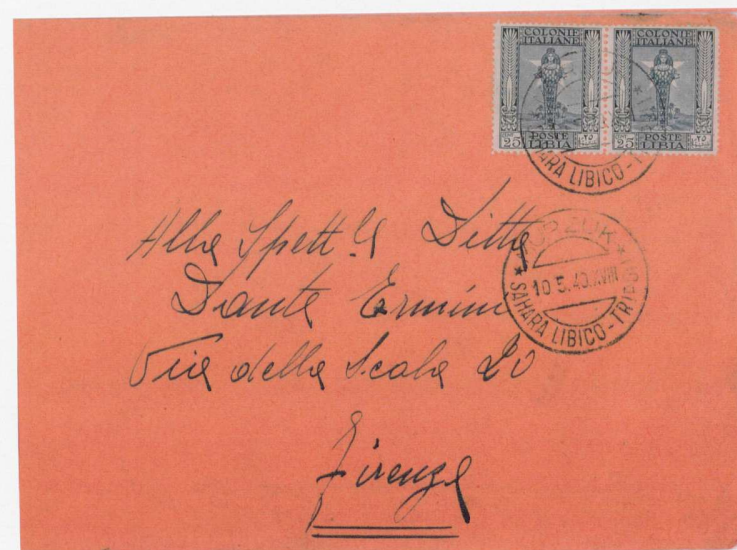 COLONIE
ITALIANE
25 POSTE
LIBIA ٢٥
COLONIE
ITALIANE
25 POSTE
LIBIA ٢٥
SAHARA LIBICO-
10.5.40.XVIII
* SAHARA LIBICO-TRIPOLI *
Alla Spett.le Ditta
Dante Ermini
Via della Scala 20
Firenze